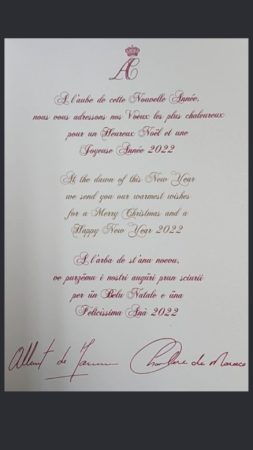 AC
A l'aube de cette Nouvelle Année,
nous vous adressons nos Voeux les plus chaleureux
pour un Heureux Noël et une
Joyeuse Année 2022
At the dawn of this New Year
we send you our warmest wishes
for a Merry Christmas and a
Happy New Year 2022
A l'arba de st'anu noevu,
ve purzému i nostri augüri pran sciurii
per ün Belu Natale e üna
Felicissima Anà 2022
Albert de Monaco Charlene de Monaco